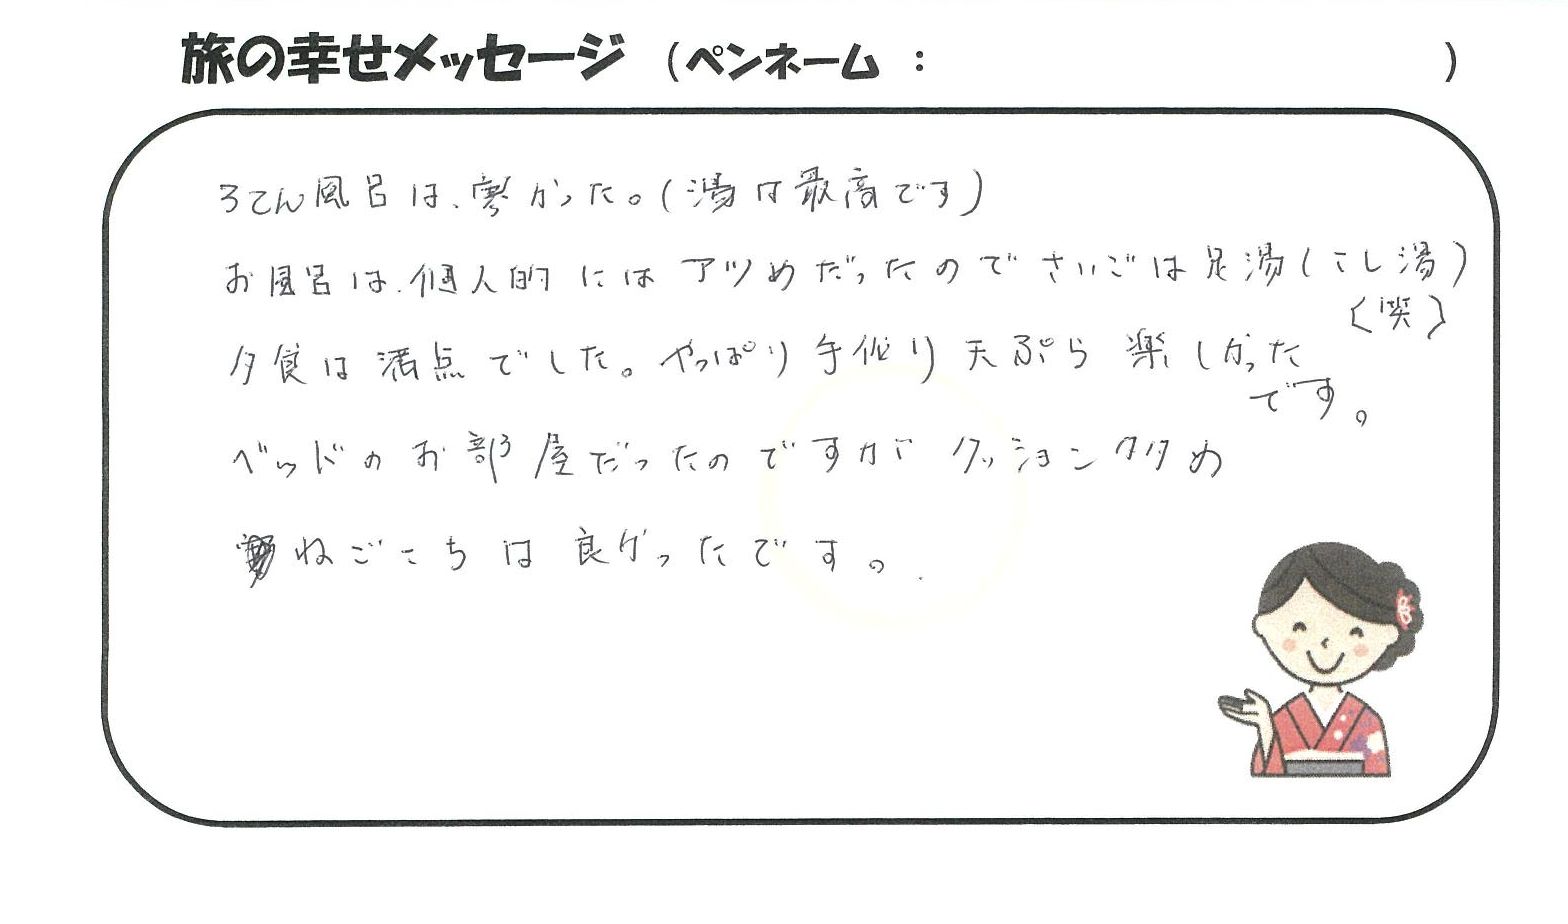 旅の幸せメッセージ (ペンネーム : )
ろてん風呂は、寒かった。(湯は最高です)
お風呂は、個人的にはアツめだったのでさいごは足湯(こし湯)
(笑)
夕食は満点でした。やっぱり手作り天ぷら楽しかった
です。
ベッドのお部屋だったのですがクッションカタめ
ねごこちは良かったです。